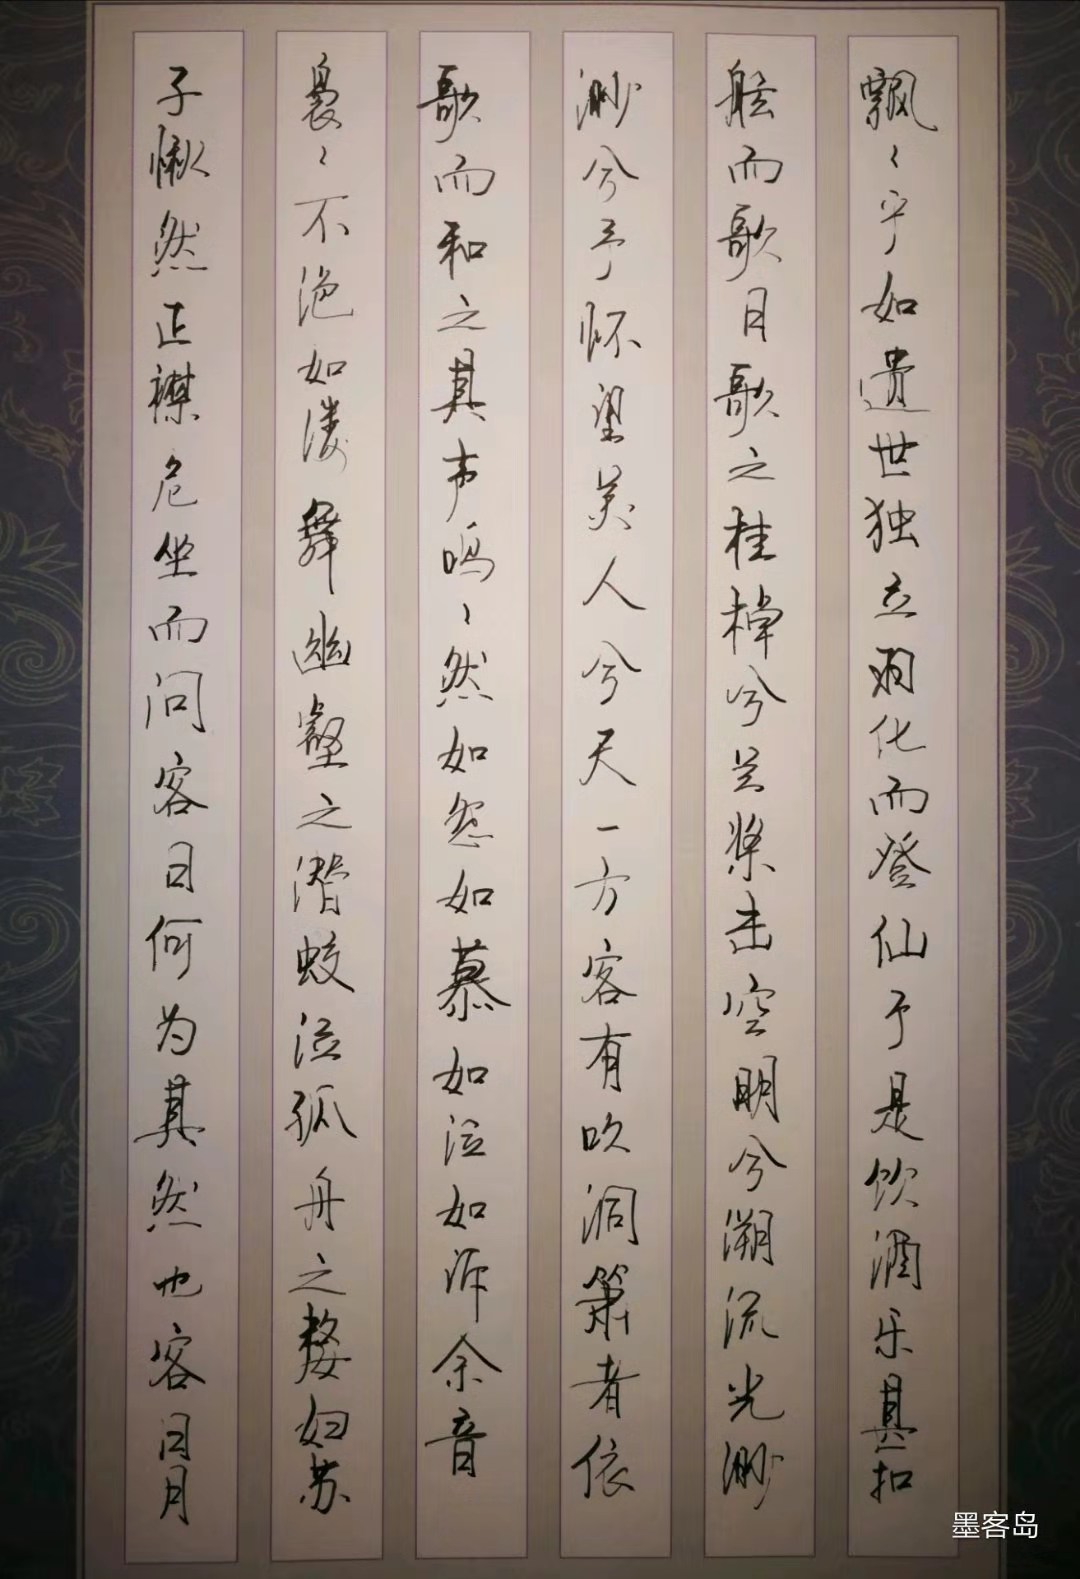 飘〻乎如遗世独立羽化而登仙于是饮酒乐甚扣
舷而歌日歌之桂棹兮兰桨击空明兮溯流光渺
渺兮予怀望美人兮天一方客有吹洞箫者依
歌而和之其声呜〻然如怨如慕如泣如诉余音
袅〻不绝如缕舞幽壑之潜蛟泣孤舟之嫠妇苏
子愀然正襟危坐而问客曰何为其然也客曰月
墨客岛